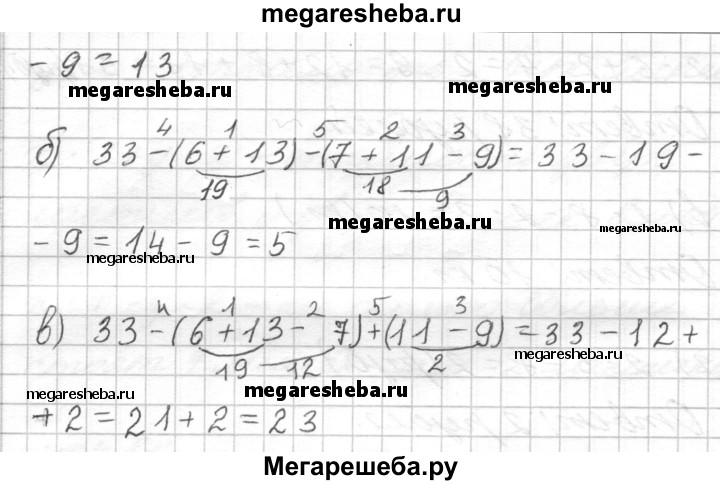 megaresheba.ru
- 9 = 13
megaresheba.ru megaresheba.ru
4 1 5 2 3
б) 33 - (6 + 13) - (7 + 11 - 9) = 33 - 19 -
19 18 9
megaresheba.ru megaresheba.ru
- 9 = 14 - 9 = 5
megaresheba.ru
4 1 2 5 3
в) 33 - (6 + 13 - 7) + (11 - 9) = 33 - 12 +
megaresheba.ru
19 12 2
megaresheba.ru megaresheba.ru
+ 2 = 21 + 2 = 23
megaresheba.ru
Мегарешеба.ру